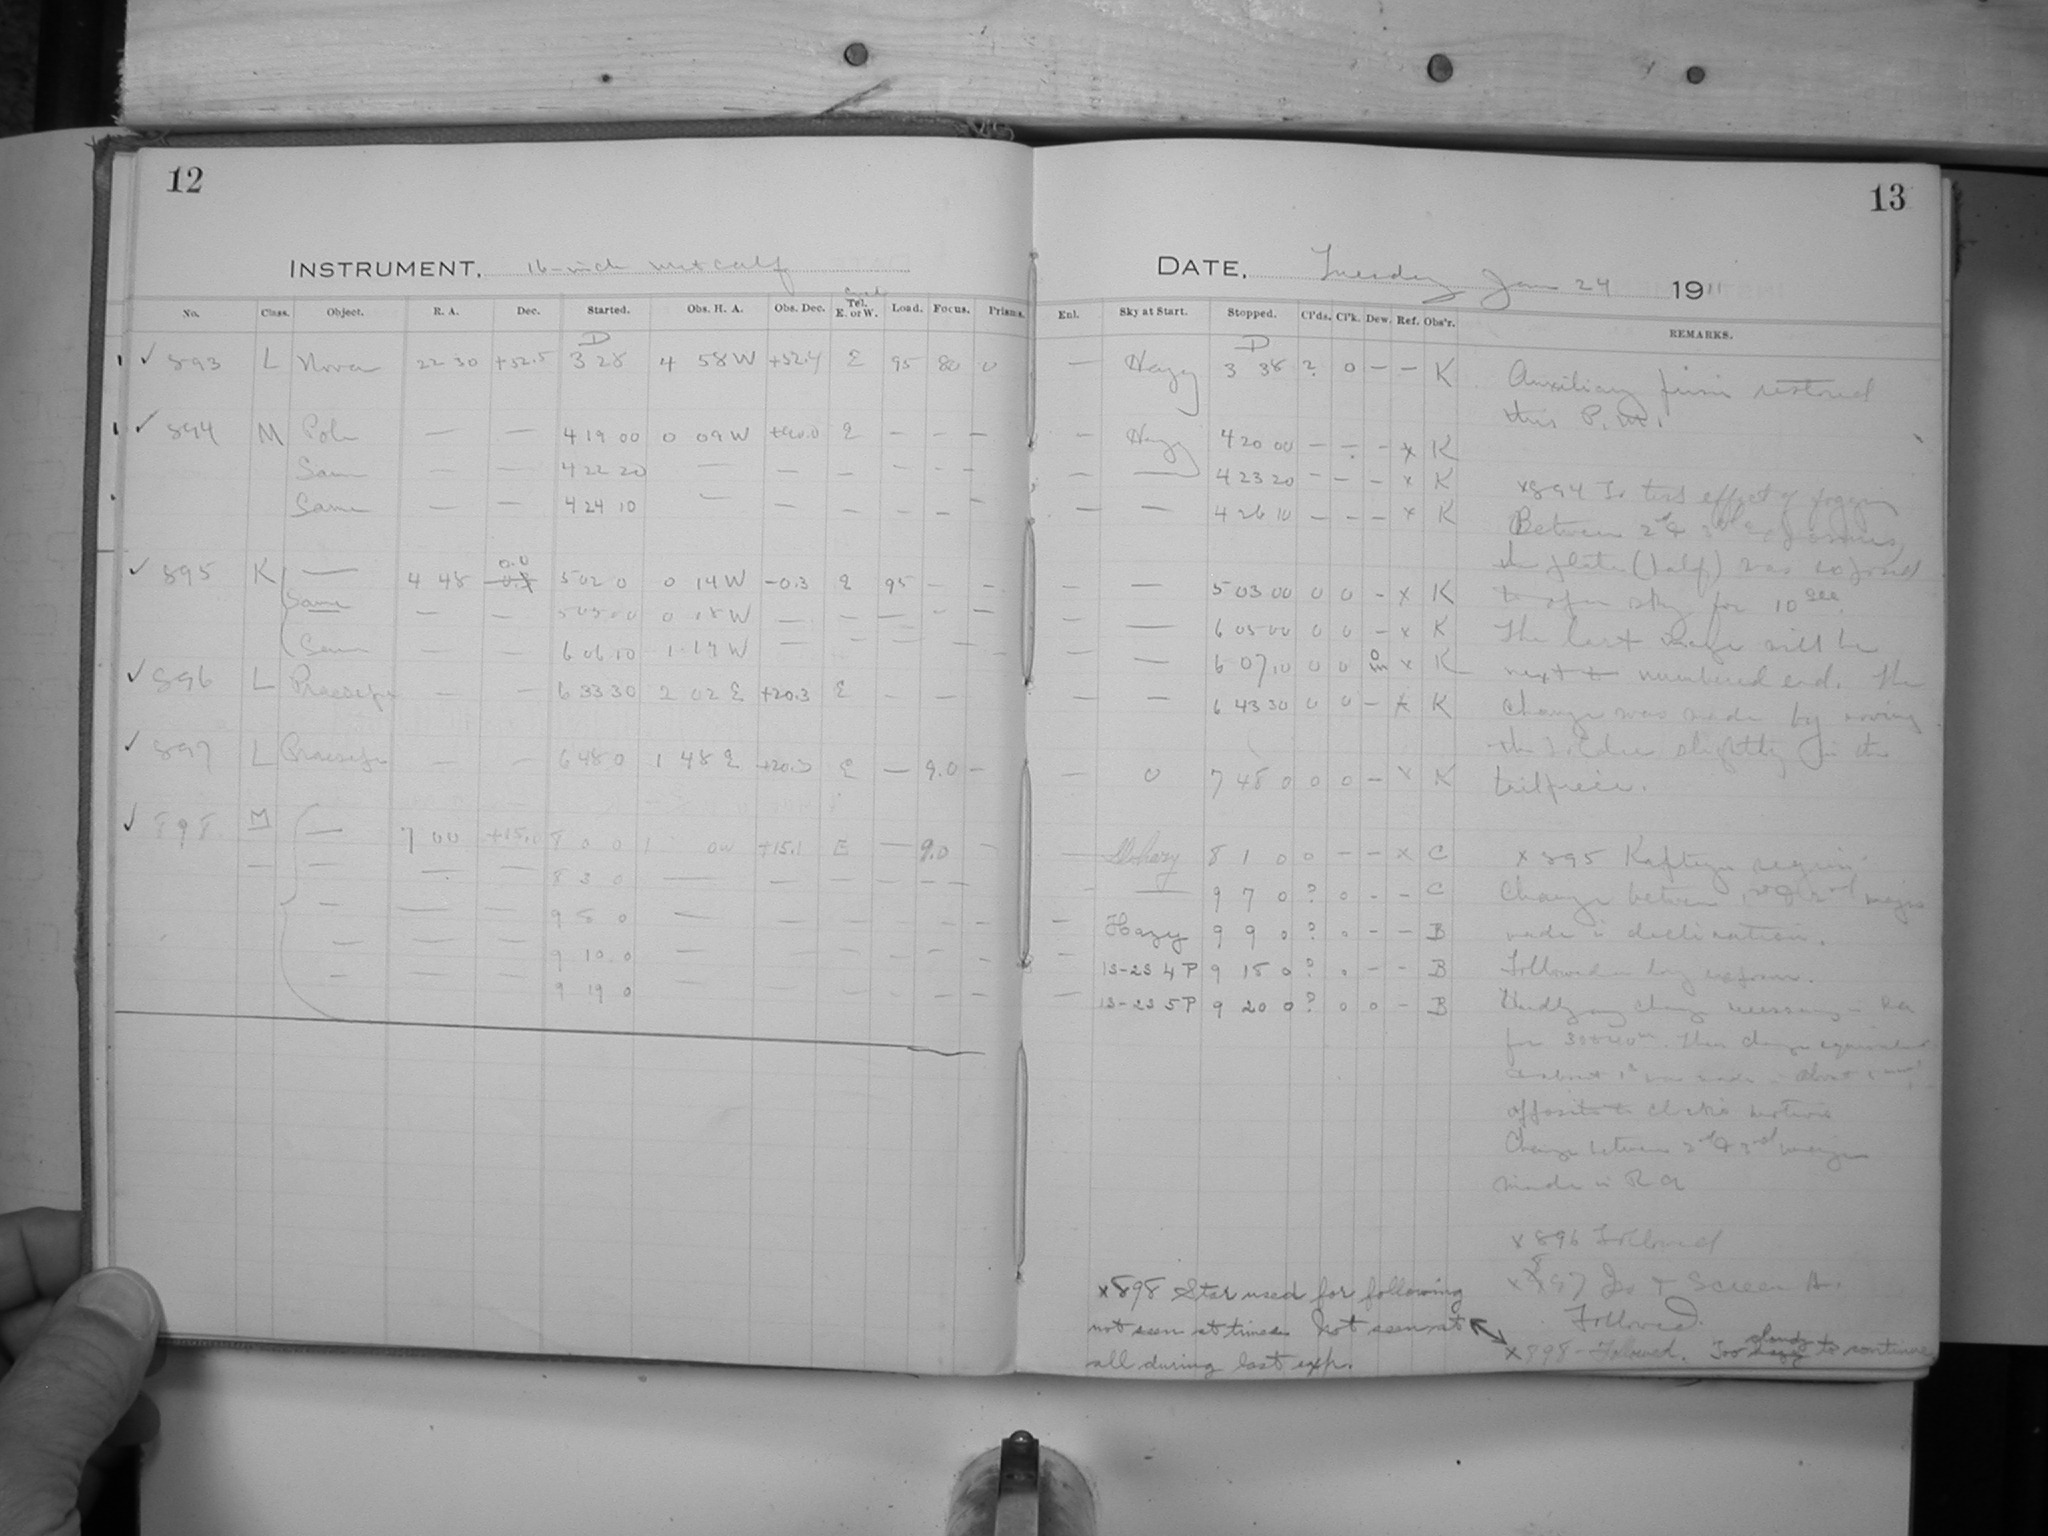 12
INSTRUMENT, 16-inch Metcalf
No. Class. Object. R. A. Dec. Started. Obs. H. A. Obs. Dec. Tel. E. or W. Load. Focus. Prisms.
✓ 893 L Nova 22 30 +52.5 D 3 28 4 58 W +52.4 E 95 80 0
✓ 894 M Pole — — 4 19 00 0 09 W +90.0 E - - -
Same — — 4 22 20 — — — - - -
Same — — 4 24 10 — — — - - -
✓ 895 K — 4 48 0.0 5 02 0 0 14 W -0.3 E 95 - -
Same — — 5 05 00 0 18 W — — — - -
Same — — 6 06 10 1 19 W — — — — -
✓ 896 L Praesepe — — 6 33 30 2 02 E +20.3 E - - -
✓ 897 L Praesepe — — 6 48 0 1 48 E +20.3 E — 9.0 -
✓ 898 M — 7 00 +15.0 8 0 0 1 0W +15.1 E — 9.0 -
— — — — 8 3 0 — — — — - -
— — — 9 8 0 — — — - - -
— — — 9 10 0 — — — - - -
— — — 9 19 0 — — — - - -
13
DATE, Tuesday Jan 24 1911
Enl. Sky at Start. Stopped. Cl'ds. Cl'k. Dew. Ref. Obs'r. REMARKS.
— Hazy D 3 38 ? 0 — — K
— Hazy 4 20 00 — — - x K
— — 4 23 20 - - - x K
— — 4 26 10 — — - x K
— — 5 03 00 0 0 - x K
— — 6 05 00 0 0 - x K
— — 6 07 10 0 0 0 x K
— — 6 43 30 0 0 - x K
— 0 7 48 0 0 0 - x K
— Sl. hazy 8 1 0 0 - - x C
— 9 7 0 ? 0 - - C
— Hazy 9 9 0 ? 0 - - B
— 13-23 4 P 9 15 0 ? 0 - - B
— 13-23 5 P 9 20 0 ? 0 0 - B
Auxiliary prism restored
this P.M.
x894 To test effect of fogging
Between 2d & 3rd exposures
the plate (half) was exposed
to open sky for 10 sec.
The last image will be
next to numbered end. The
change was made by moving
the holder slightly in the
tailpiece.
x895 Kapteyn region
Change between 1st & 2nd images
made in declination.
Followed
Hardly any change necessary in RA
for 30 or 40m. Then change equivalent
to about
opposite to clock's motion
Change between 2nd & 3rd images
made in RA
x896 Followed
x897 Screen
Followed.
x898 - Followed. Too cloudy to continue
x898 Star used for following
not seen at times. Not seen at
all during last exp.